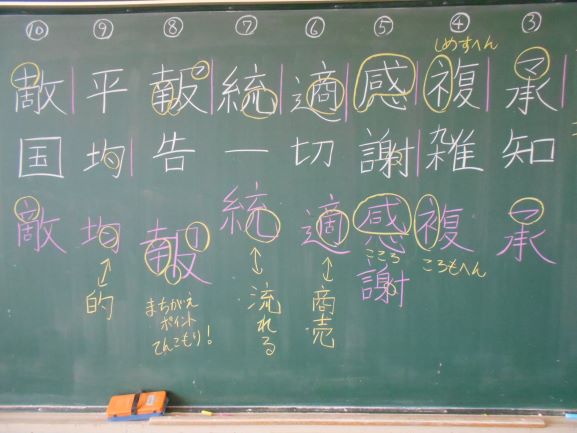 ③
承知
承
④
しめすへん
複雑
複
ころもへん
⑤
感謝
感
こころ
謝
⑥
適切
適
↔
商売
⑦
統一
統
↔
流れる
⑧
報告
報
まちがえ
ポイント
てんこもり!
⑨
平均
均
↔
的
⑩
敵国
敵